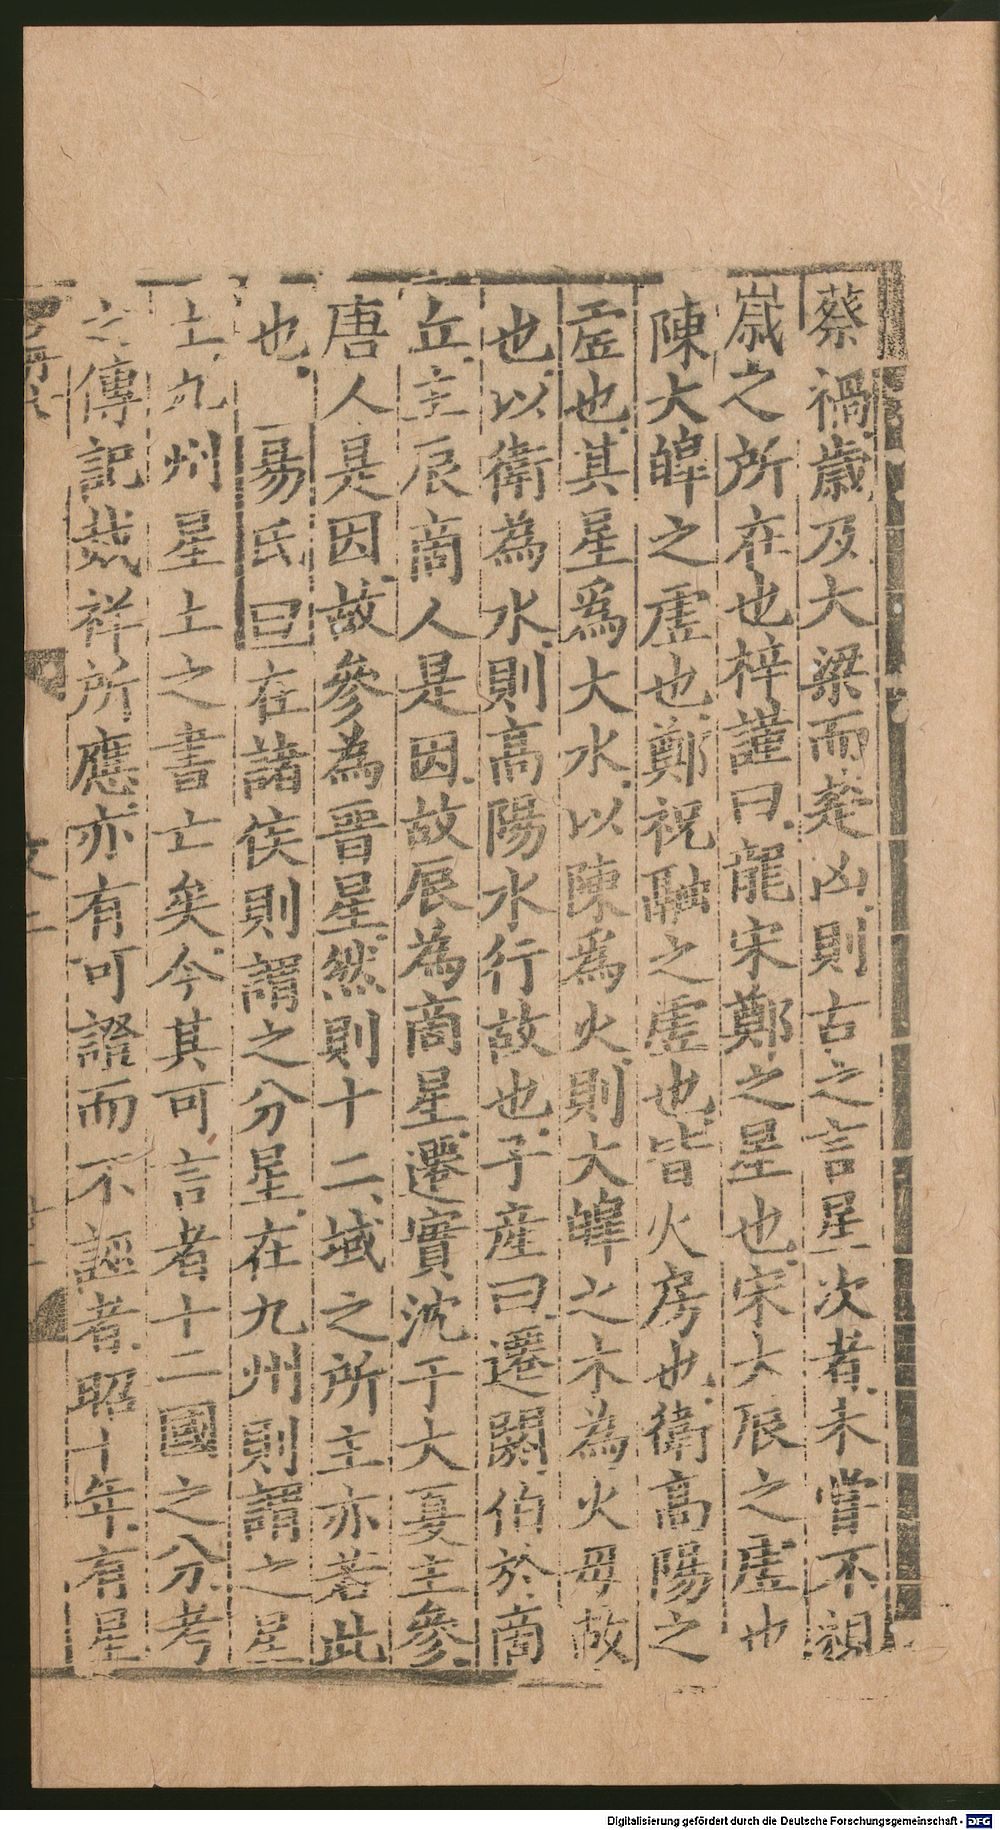 蔡禍歲及大梁而楚凶則古之言星次者未嘗不視
歲之所在也梓謹曰龍宋鄭之星也宋大辰之虛也
陳大皞之虛也鄭祝融之虛也皆火房也衛高陽之
虛也其星爲大水以陳爲火則大皞之木為火母故
也以衛為水則高陽水行故也子産曰遷閼伯於商
丘主辰商人是因故辰為商星遷實沈于大夏主參
唐人是因故參為晋星然則十二域之所主亦若此
也易氏曰在諸侯則謂之分星在九州則謂之星
土九州星土之書亡矣今其可言者十二國之分考
之傳記烖祥所應亦有可證而不誣者昭十年有星
Digitalisierung gefördert durch die Deutsche Forschungsgemeinschaft - DFG